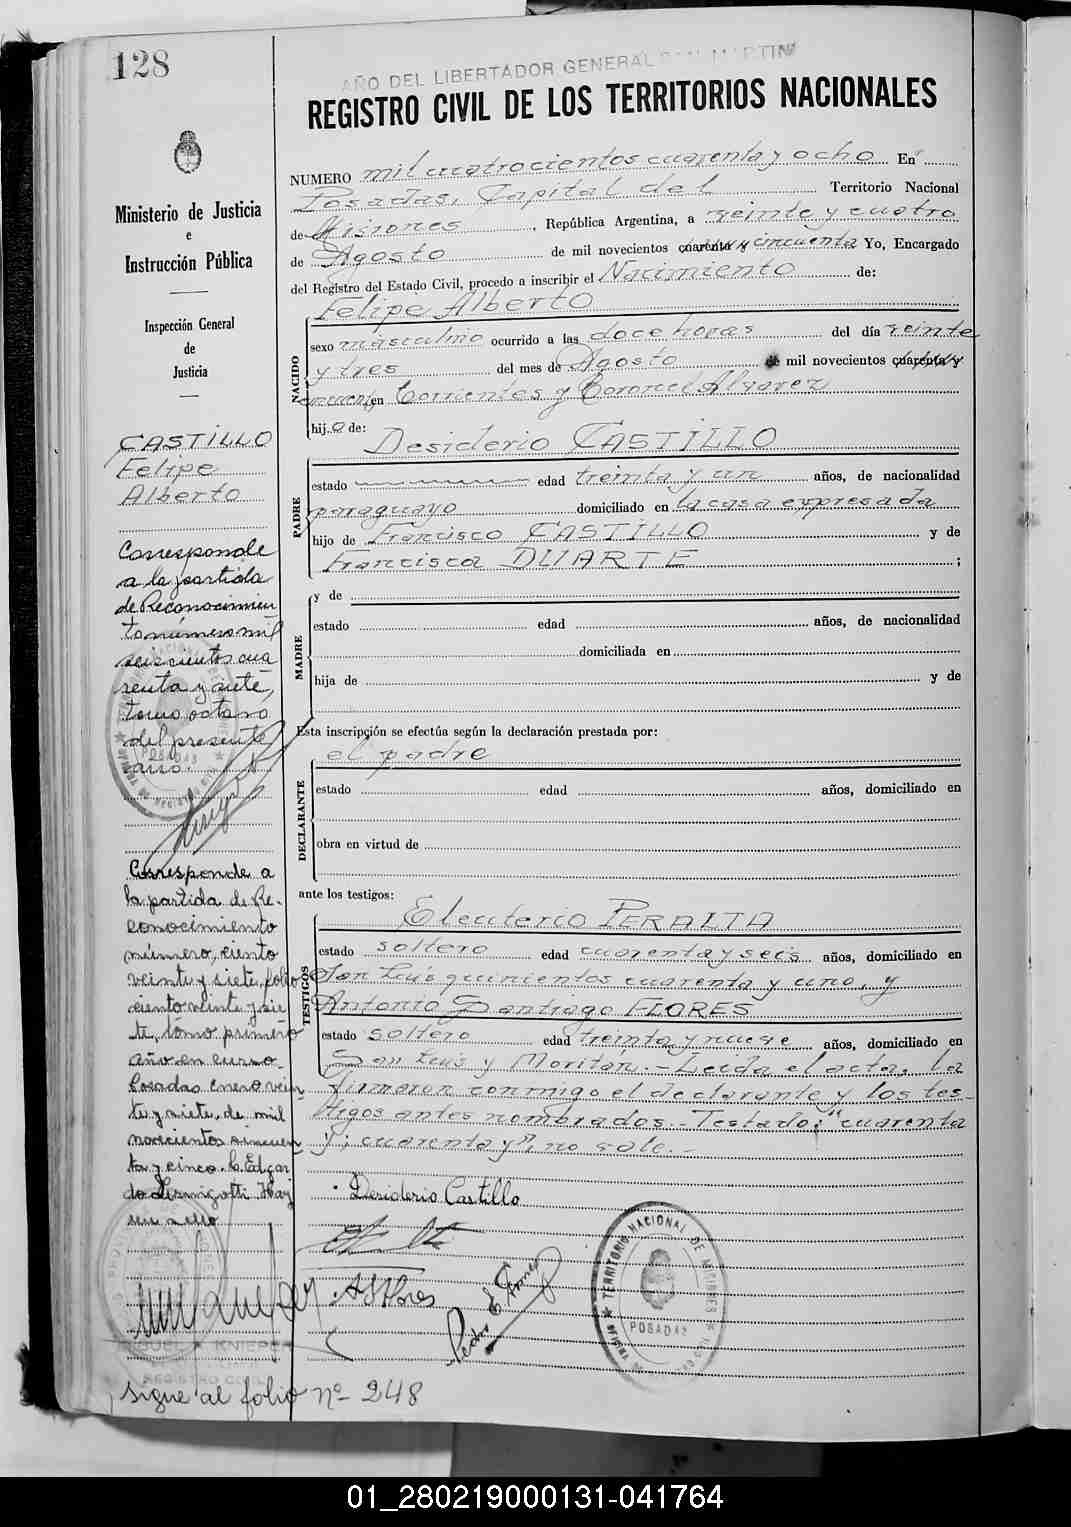 128
AÑO DEL LIBERTADOR GENERAL SAN MARTIN
REGISTRO CIVIL DE LOS TERRITORIOS NACIONALES
Ministerio de Justicia
e
Instrucción Pública
Inspección General
de
Justicia
CASTILLO
Felipe
Alberto
Corresponde
a la partida
de Reconocimien
to número mil
seiscientos cua
renta y siete,
tomo octavo
del presente
año.
Corresponde a
la partida de Re-
conocimiento
número, ciento
veinte y siete, folio
ciento veinte y sie-
te, tomo primero
año en curso.
Posadas enero vein
te y siete, de mil
novecientos cincuen
ta y cinco.
NUMERO mil cuatrocientos cuarenta y ocho En
Posadas, Capital del Territorio Nacional
de Misiones, República Argentina, a veinte y cuatro
de Agosto de mil novecientos cuarenta y cincuenta Yo, Encargado
del Registro del Estado Civil, procedo a inscribir el Nacimiento de:
Felipe Alberto
NACIDO
sexo masculino ocurrido a las doce horas del día veinte
y tres del mes de Agosto de mil novecientos cuarenta y
cincuenta en Corrientes y Coronel Alvarez
hijo de:
Desiderio CASTILLO
PADRE
estado edad treinta y un años, de nacionalidad
paraguayo domiciliado en la casa expresada
hijo de Francisco CASTILLO y de
Francisca DUARTE ;
MADRE
y de
estado edad años, de nacionalidad
domiciliada en
hija de y de
Esta inscripción se efectúa según la declaración prestada por:
el padre
DECLARANTE
estado edad años, domiciliado en
obra en virtud de
ante los testigos:
TESTIGOS
Eleuterio PERALTA
estado soltero edad cuarenta y seis años, domiciliado en
San Luis quinientos cuarenta y uno, y
Antonio Santiago FLORES
estado soltero edad treinta y nueve años, domiciliado en
San Luis y Moritán.- Leída el acta, la
firmaron conmigo el declarante y los tes-
tigos antes nombrados.- Testado: "cuarenta
y; cuarenta y" no vale.-
Desiderio Castillo
A S Flores
TERRITORIO NACIONAL DE MISIONES
POSADAS
MIGUEL KNIEPER
REGISTRO CIVIL
sigue al folio nº 248
01_280219000131-041764